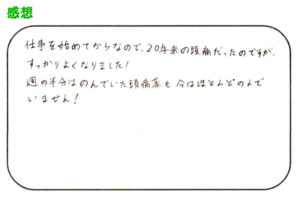 感想
仕事を始めてからなので、20年来の頭痛だったのですが、
すっかりよくなりました!
週の半分はのんでいた頭痛薬も今はほとんどのんで
いません!